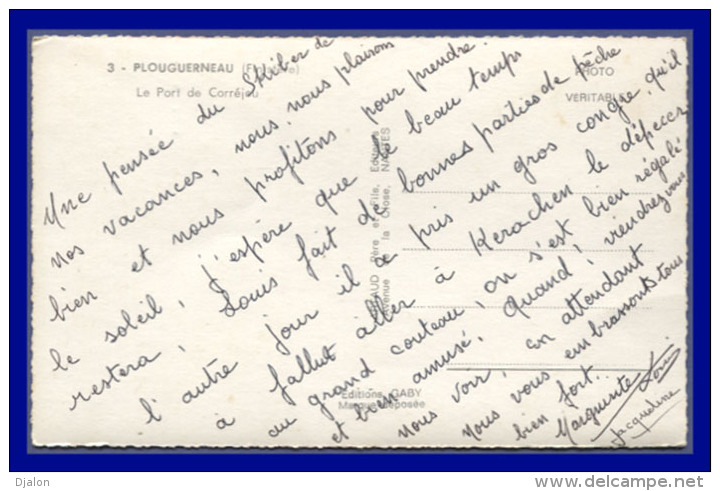 3 - PLOUGUERNEAU (Finistère)
Le Port de Corréjou
PHOTO
VERITABLE
Une pensée du Skiber de
nos vacances, nous nous plaisons
bien et nous profitons pour prendre
le soleil, j'espère que le beau temps
restera, Louis fait de bonnes parties de pêche
l'autre jour il a pris un gros congre, qu'il
a fallut aller à Kerachen le dépecer
au grand couteau, on s'est bien régalé
et bien amusé, Quand, viendrez vous
nous voir, en attendant
nous vous embrassons tous
bien fort.
Marguerite Louis
Jacqueline
Père et Fils, Editeurs
Avenue de la Close, NANTES
Editions GABY
Marque déposée
Djalon
delcampe.net